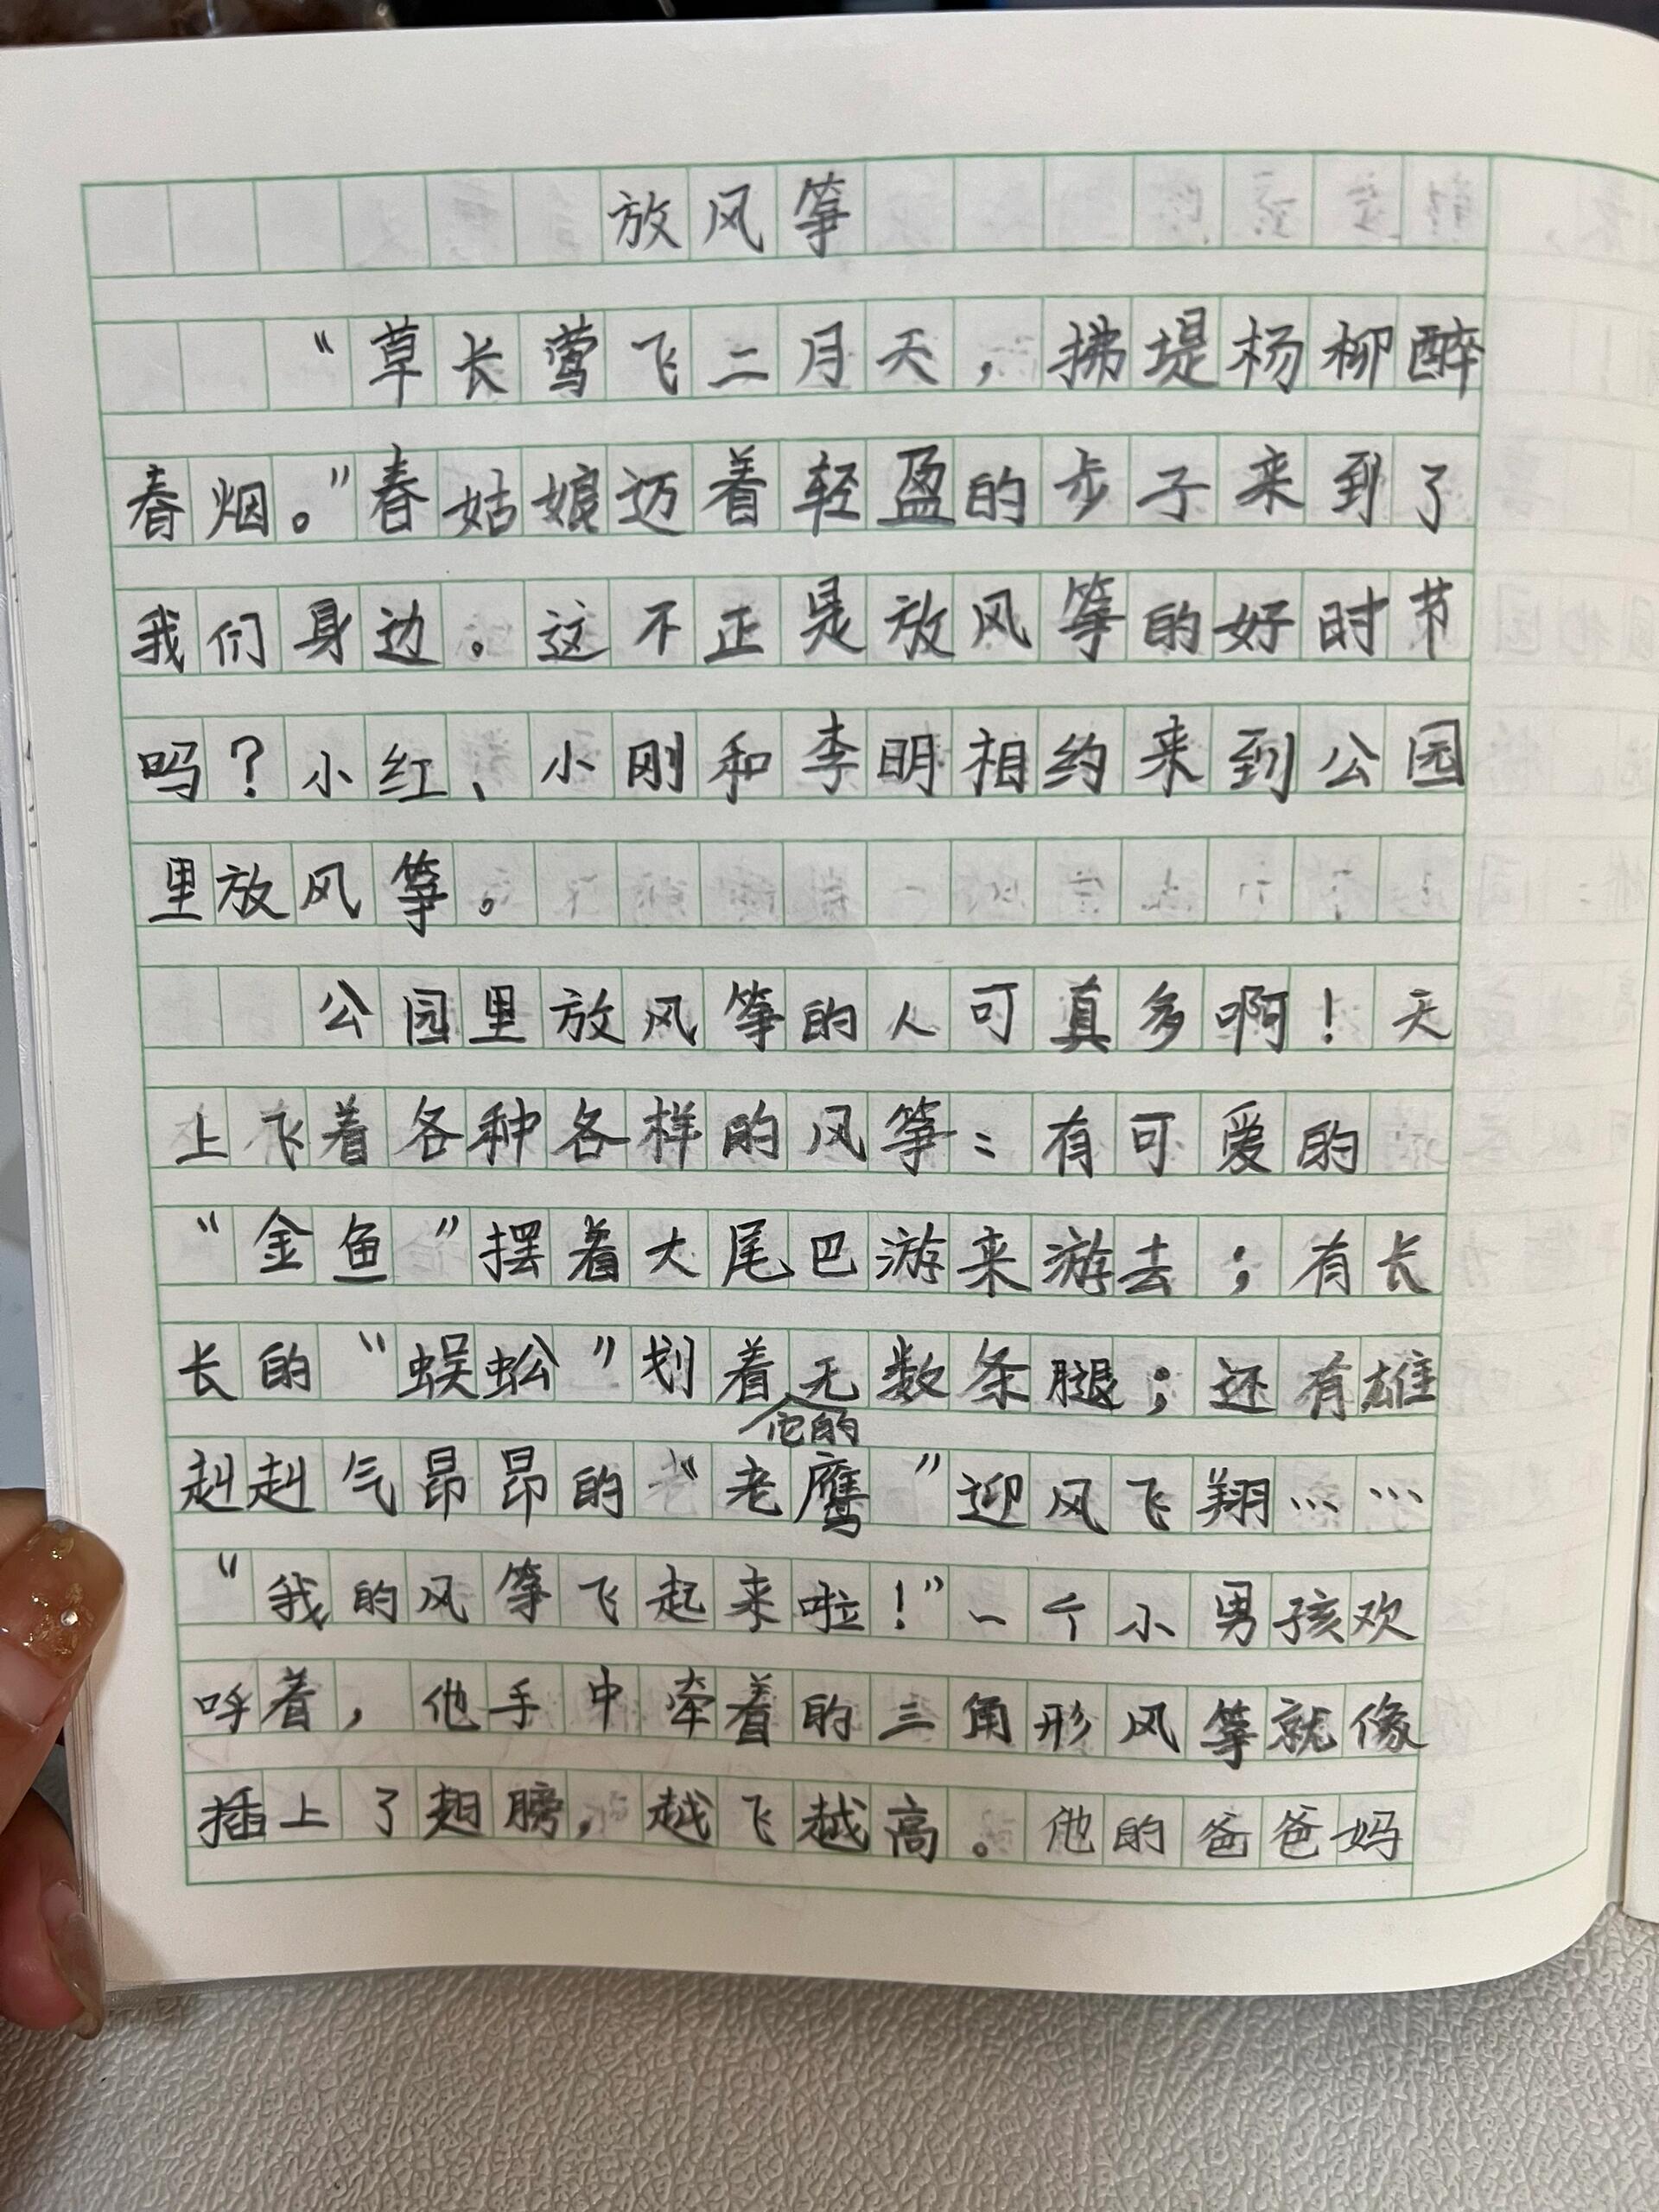 放风筝
“草长莺飞二月天，拂堤杨柳醉
春烟。”春姑娘迈着轻盈的步子来到了
我们身边。这不正是放风筝的好时节
吗？小红、小刚和李明相约来到公园
里放风筝。
公园里放风筝的人可真多啊！天
上飞着各种各样的风筝：有可爱的
“金鱼”摆着大尾巴游来游去；有长
长的“蜈蚣”划着它的无数条腿；还有雄
赳赳气昂昂的“老鹰”迎风飞翔……
“我的风筝飞起来啦！”一个小男孩欢
呼着，他手中牵着的三角形风筝就像
插上了翅膀，越飞越高。他的爸爸妈